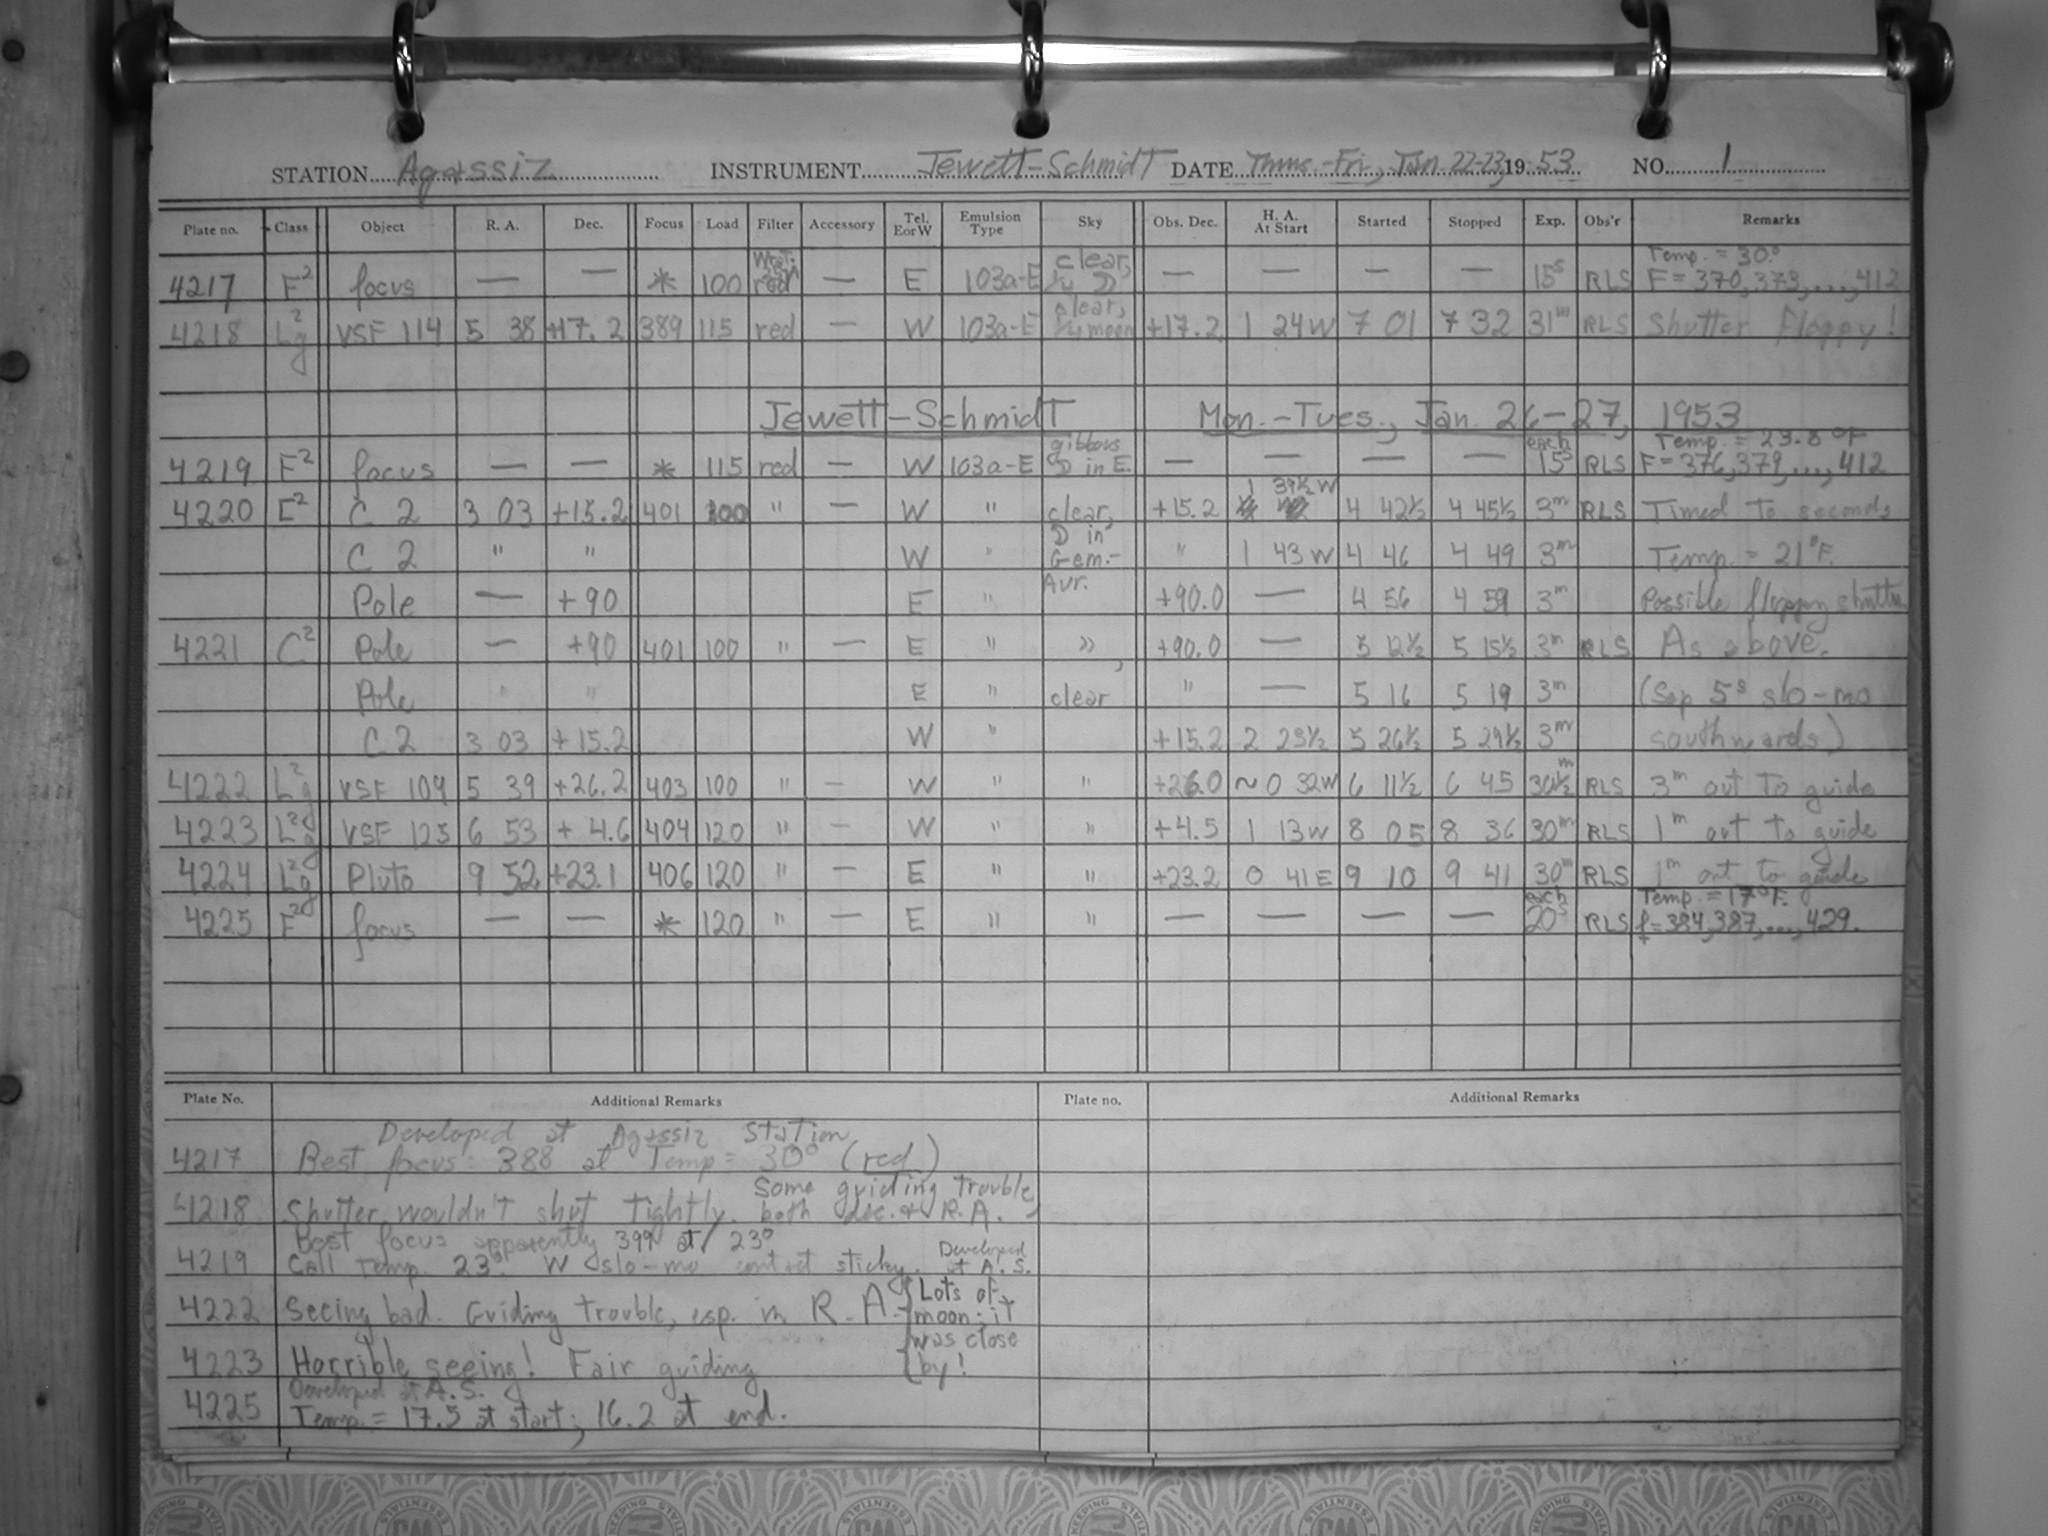 STATION Agassiz INSTRUMENT Jewett-Schmidt DATE Thurs.-Fri., Jan. 22-23, 19 53 NO. 1
Plate no. Class Object R. A. Dec. Focus Load Filter Accessory Tel. EorW Emulsion Type Sky Obs. Dec. H. A. At Start Started Stopped Exp. Obs'r Remarks
4217 F² focus — — * 100 red — E 103a-E clear, — — — — 15s RLS Temp. = 30° F = 370, 373, ..., 412
4218 L²g VSF 114 5 38 +17.2 389 115 red — W 103a-E clear, moon +17.2 1 24W 7 01 7 32 31m RLS Shutter floppy!
Jewett-Schmidt Mon.-Tues., Jan. 26-27, 1953
4219 F² focus — — * 115 red — W 103a-E gibbous ☽ in E. — — — — each 15s RLS Temp. = 23.8 °F F = 376, 379, ..., 412
4220 C² C 2 3 03 +15.2 401 100 " — W " clear, +15.2 1 39½ W 4 42½ 4 45½ 3m RLS Timed to seconds
C 2 " " W " ☽ in Gem.- " 1 43 W 4 46 4 49 3m Temp. = 21°F.
Pole — +90 E " Aur. +90.0 — 4 56 4 59 3m Possible floppy shutter
4221 C² Pole — +90 401 100 " — E " " +90.0 — 5 12½ 5 15½ 3m RLS As above.
Pole " " E " clear " — 5 16 5 19 3m (Sep 5s slo-mo
C 2 3 03 +15.2 W " +15.2 2 23½ 5 26½ 5 29½ 3m southwards)
4222 L²g VSF 109 5 39 +26.2 403 100 " — W " " +26.0 ~0 32W 6 11½ 6 45 30½m RLS 3m out to guide
4223 L²g VSF 125 6 53 +4.6 404 120 " — W " " +4.5 1 13W 8 05 8 36 30m RLS 1m out to guide
4224 L²g Pluto 9 52 +23.1 406 120 " — E " " +23.2 0 41E 9 10 9 41 30m RLS 1m out to guide
4225 F² focus — — * 120 " — E " " — — — — each 20s RLS Temp. = 17°F. f = 384, 387, ..., 429.
Plate No. Additional Remarks Plate no. Additional Remarks
Developed at Agassiz Station
4217 Best focus: 388 at Temp = 30° (red)
4218 Shutter wouldn't shut tightly. Some guiding trouble, both dec. & R.A.
Best focus apparently 399 at 23°
4219 Cell temp. 23°. W slo-mo contact sticky. Developed at A.S.
4222 Seeing bad. Guiding trouble, esp. in R.A. { Lots of moon; it
4223 Horrible seeing! Fair guiding { was close by!
Developed at A.S.
4225 Temp. = 17.5 at start; 16.2 at end.